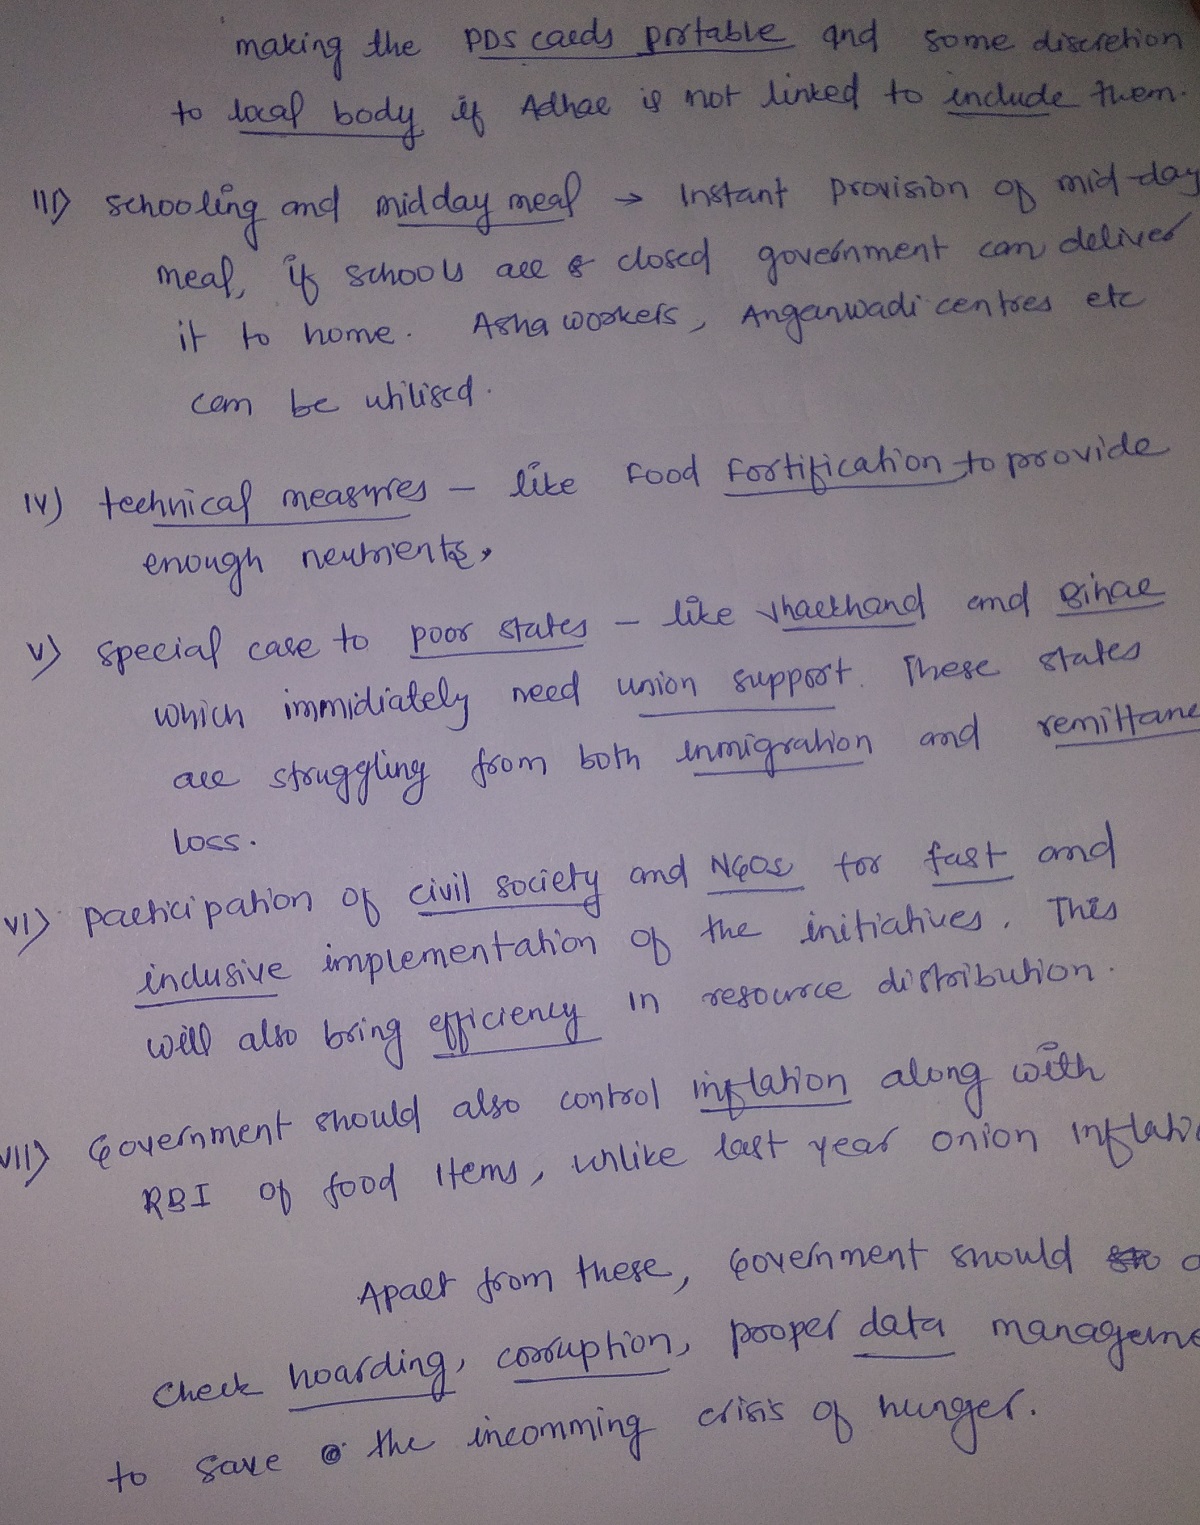 making the PDS cards portable and some discretion
to local body if Adhar is not linked to include them.
III) schooling and midday meal → Instant provision of mid-day
meal, if schools are closed government can deliver
it to home. Asha workers, Anganwadi centres etc
can be utilised.
IV) technical measures - like Food Fortification to provide
enough neutrients,
V) special case to poor states - like Jharkhand and Bihar
which immidiately need union support. These states
are struggling from both inmigration and remittance
loss.
VI) participation of civil society and NGOs for fast and
inclusive implementation of the initiatives. This
will also bring efficiency in resource distribution.
VII) Government should also control inflation along with
RBI of food items, unlike last year onion inflatio
Apart from these, Government should
check hoarding, corruption, proper data manageme
to save the incomming crisis of hunger.